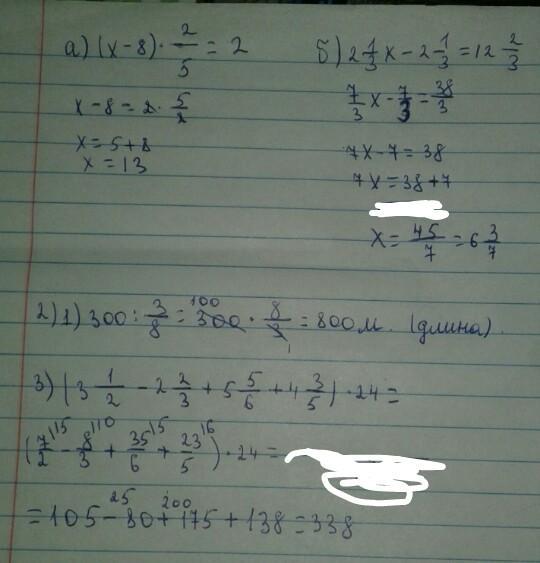 а) (x-8) · 2/5 = 2
x-8=2· 5/2
x=5+8
x=13
б) 2 1/3 x - 2 1/3 = 12 2/3
7/3 x - 7/3 = 38/3
7x-7=38
7x=38+7
x= 45/7 = 6 3/7
2) 1) 300 : 3/8 = 300 100 · 8/3 1 = 800 м. (длина).
3) (3 1/2 - 2 2/3 + 5 5/6 + 4 3/5) · 24 =
(7/2 \15 - 8/3 \10 + 35/6 \5 + 23/5 \6) · 24 =
25 200
= 105 - 80 + 175 + 138 = 338